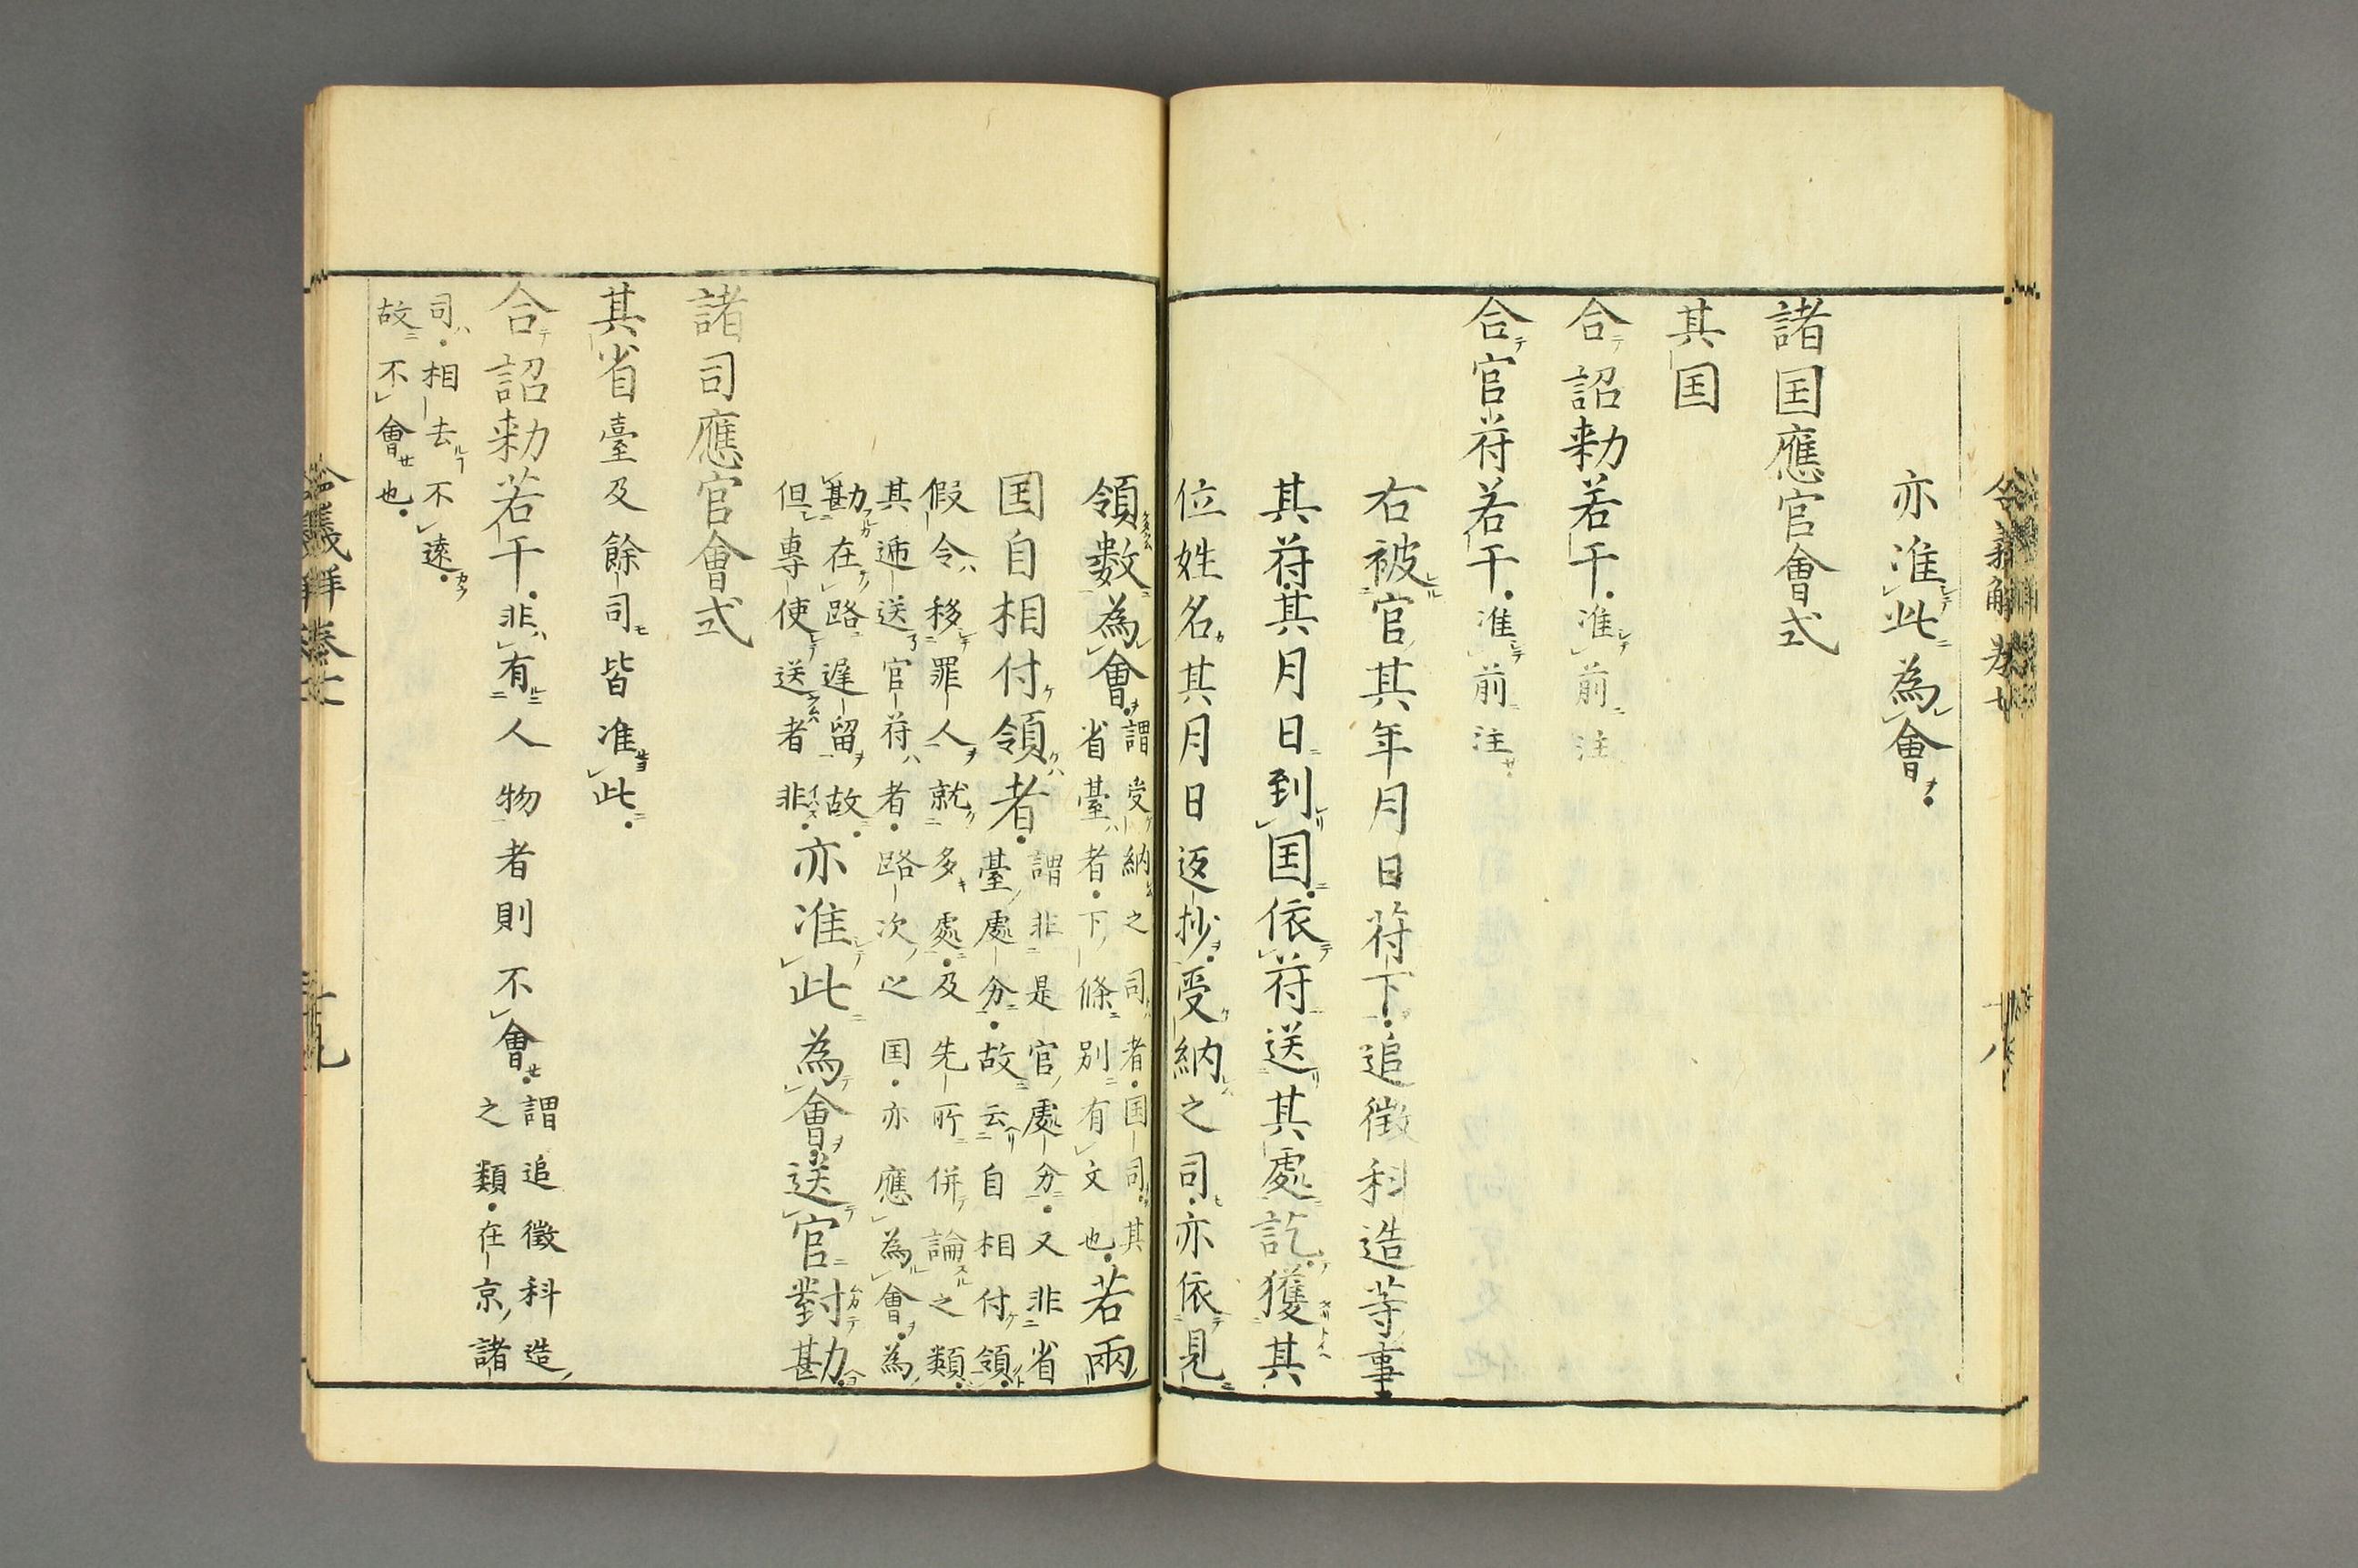 亦准此為會
諸国應官會式
其国
合詔勅若干准前注
合官符若干准前注
右被官其年月日符下追徴科造等事
其符其月日到国依符送其處訖獲其
位姓名其月日返抄受納之司亦依見
領数為會謂受納之司者国司其
省臺者下條別有文也若兩
国自相付領者謂非是官處分又非省
臺處分故云自相付領
假令移罪人就多處及先所併論之類
其逓送官符者路次之国亦應為會為
勘在路遅留故
但專使送者非亦准此為會送官對勘
諸司應官會式
其省臺及餘司皆准此
合詔勅若干非有人物者則不會謂追徴科造
之類在京諸
司相去不遠
故不會也